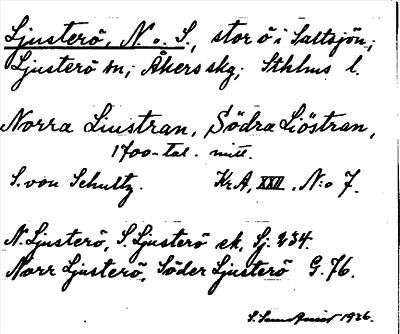 Ljusterö, N. o. S., stor ö i Saltsjön;
Ljusterö sn; Åkers skg; Sthlms l.
Norra Liustran, Södra Liöstran,
1700-tal. mitt.
S. von Schultz. Kr.A, XXII. N:o 7.
N. Ljusterö, S. Ljusterö ek. Sj. 234.
Norr Ljusterö, Söder Ljusterö G. 76.
1936.